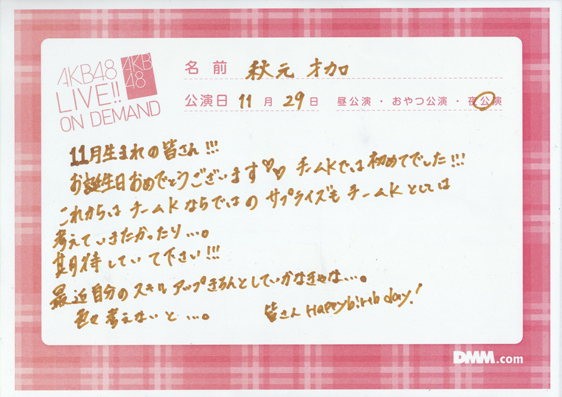 AKB48
LIVE!!
ON DEMAND
AKB
48
名前 秋元才加
公演日 11月29日 昼公演・おやつ公演・夜公演
11月生まれの皆さん!!!
お誕生日おめでとうございます♡♡ チームKでは初めてでした!!!
これからは チームKならではの サプライズも チームKとしては
考えていきたかったり…。
期待していて下さい!!!
最近自分のスキルアップきちんとしていかなきゃな…。
色々考えないと…。 皆さん Happy birthday!
DMM.com